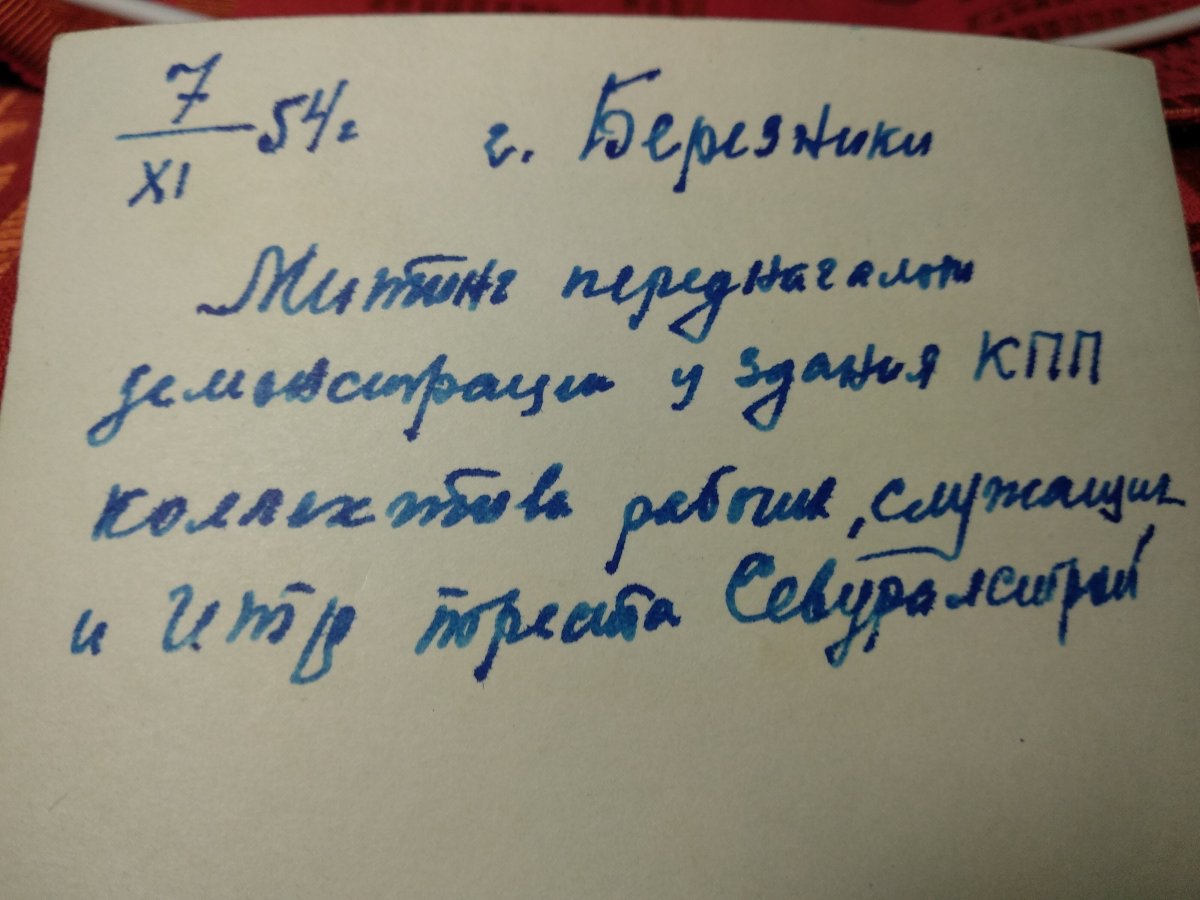 7/XI 54г г. Березники
Митинг перед началом
демонстрации у здания КПП
коллектива рабочих, служащих
и ИТР треста Севуралстрой